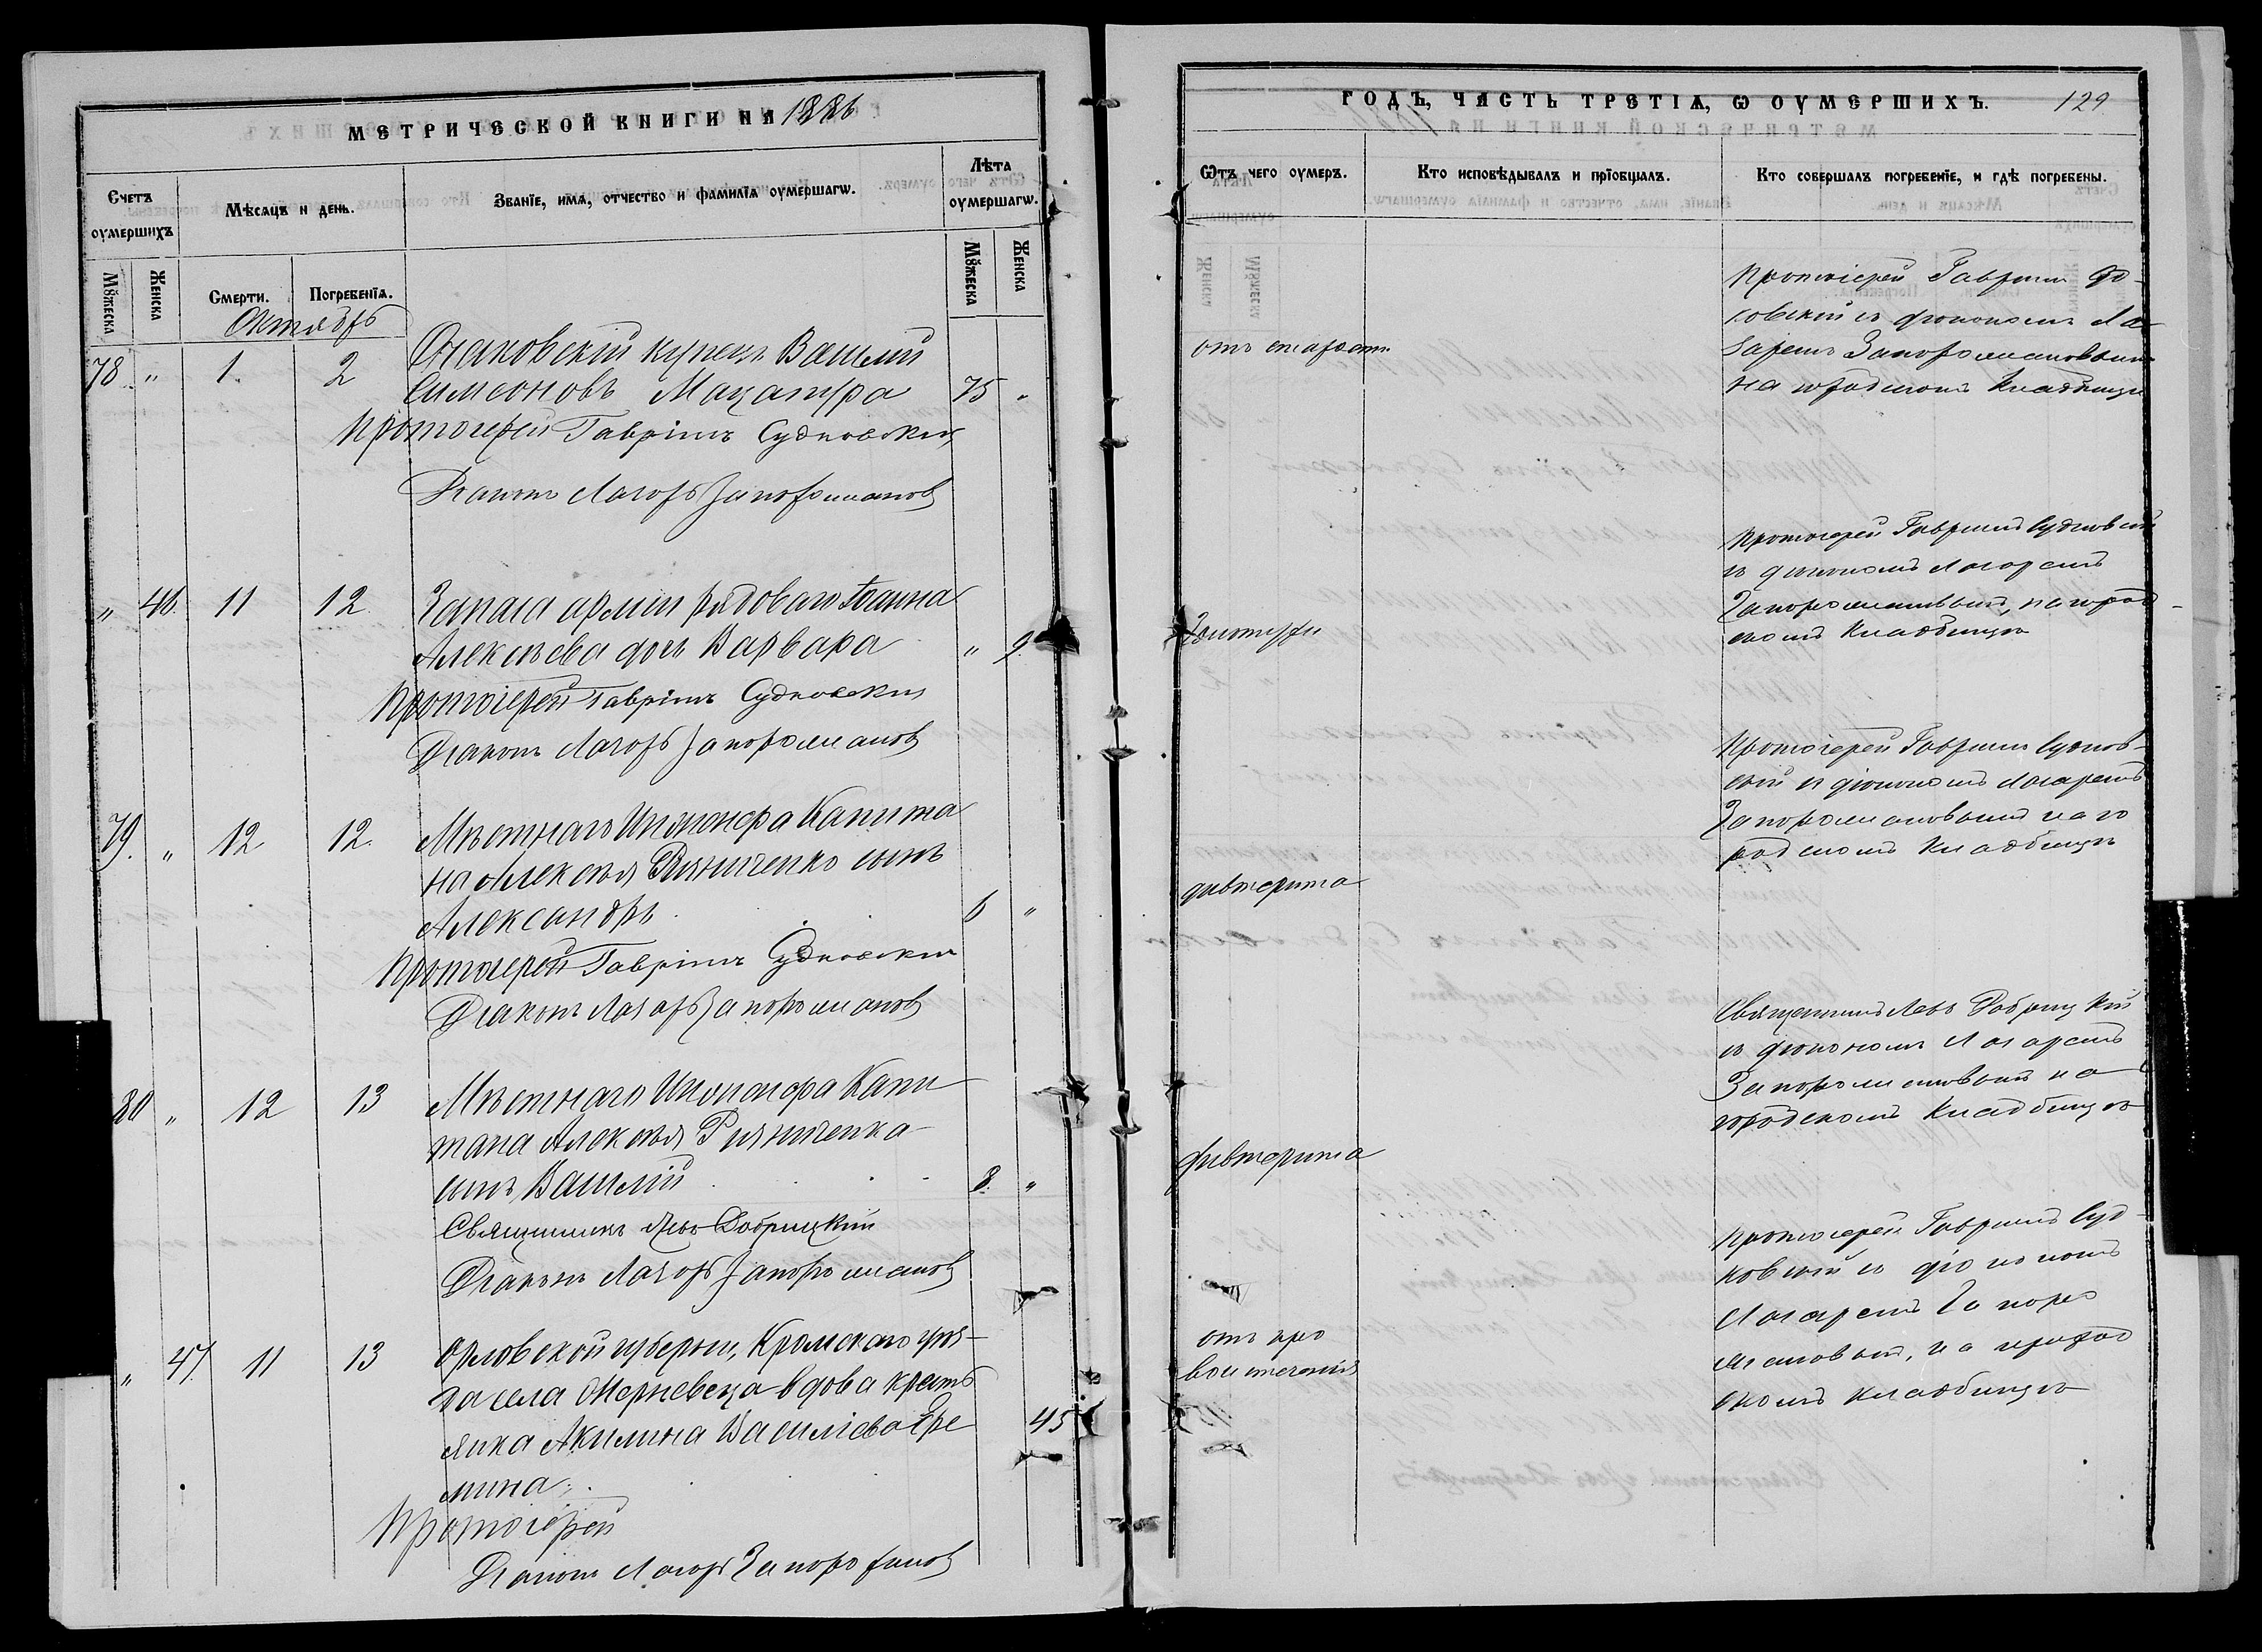 МЕТРИЧЕСКОЙ КНИГИ НА 1886
Счетъ оумершихъ
Мѣсяцъ и день.
Званїе, имя, отчество и фамилїя оумершагѡ.
Лѣта оумершагѡ.
Мꙋжеска
Женска
Смерти.
Погребенїя.
Мꙋжеска
Женска
Октябрь
78 " 1. 2 Очаковскій купецъ Василій
Симеоновъ Мацатра 75 "
Протоіерей Гавріилъ Судковскій
Діаконъ Лазарь Запорожановъ
" 46. 11 12. Запаса арміи рядоваго Іоанна
Алексѣева дочь Варвара " 9.
Протоіерей Гавріилъ Судковскій
Діаконъ Лазарь Запорожановъ
79. " 12 12. Мѣстнаго Капита
на Алексѣя сынъ
Александръ 6 "
Протоіерей Гавріилъ Судковскій
Діаконъ Лазарь Запорожановъ
80 " 12 13 Мѣстнаго Капи
тана Алексѣя
сынъ Василій 8. "
Священникъ Левъ Добрицкій
Діаконъ Лазарь Запорожановъ
" 47. 11 13 Орловской губерніи, Кромскаго уѣз-
да села вдова крестъ
янка Акилина Василіева Ере 45
мина.
Протоіерей
Діаконъ Лазарь Запорожановъ
ГОДЪ, ЧАСТЬ ТРЕТІЯ, Ѡ ОУМЕРШИХЪ. 129.
Ѿтъ чего оумеръ.
Кто исповѣдывалъ и прїобщалъ.
Кто совершалъ погребенїе, и гдѣ погребены.
отъ старости
Протоіерей Гавріилъ Суд-
ковскій съ діакономъ Ла-
заремъ Запорожановымъ
на городскомъ кладбищѣ
Протоіерей Гавріилъ Судковскій
съ діакономъ Лазаремъ
Запорожановымъ, на город-
скомъ кладбищѣ
дифтерита
Протоіерей Гавріилъ Судков-
скій съ діакономъ Лазаремъ
Запорожановымъ на го
родскомъ кладбищѣ
дифтерита
Священникъ Левъ Добрицкій
съ діакономъ Лазаремъ
Запорожановымъ на
городскомъ кладбищѣ
отъ кро
вотеченія
Протоіерей Гавріилъ Суд-
ковскій съ діакономъ
Лазаремъ Запоро
жановымъ, на город
скомъ кладбищѣ